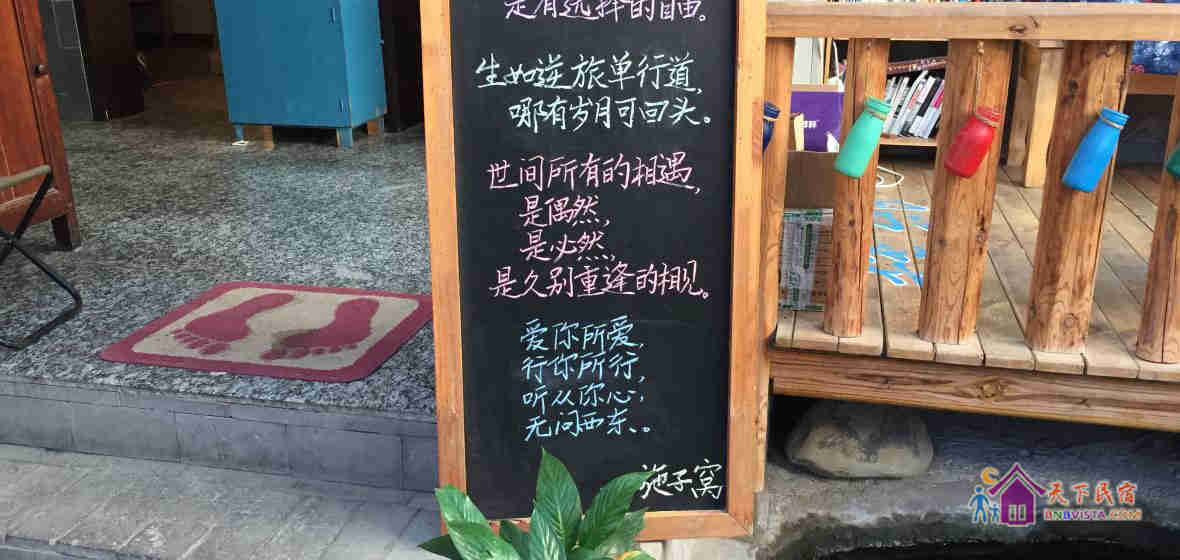 是有选择的自由。
生如逆旅单行道,
哪有岁月可回头。
世间所有的相遇,
是偶然,
是必然,
是久别重逢的相见。
爱你所爱,
行你所行,
听从你心,
无问西东、。
施子窝
天下民宿
BNBVISTA.COM